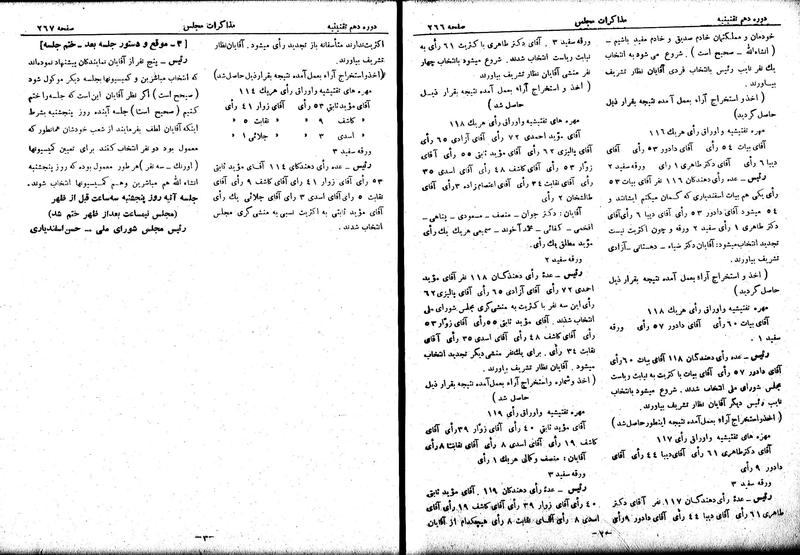 دوره دهم تقنینیه
مذاکرات مجلس
صفحه ۲۶۶
خودمان و مملکتمان خادم صدیق و خادم مفید باشیم -
( انشاءالله - صحیح است ) . شروع می شود به انتخاب
یك نفر نایب رئیس بانتخاب فردی آقایان نظار تشریف
بیاورند .
( اخذ و استخراج آراء بعمل آمده نتیجه بقرار ذیل
حاصل گردید )
مهره تفتیشیه و اوراق رأی هریك ۱۱۶
آقای بیات ۵۴ رأی آقای دادور ۵۳ رأی آقای
دیبا ۶ رأی آقای دکتر طاهری ۱ رأی ورقه سفید ۲
رئیس - عده رأی دهندگان ۱۱۶ نفر آقای بیات ۵۳
رأی یکی هم بیات اسفندیاری که گمان میکنم ایشانند و
۵۴ میشود آقای دادور ۵۳ رأی آقای دیبا ۶ رأی آقای
دکتر طاهری ۱ رأی سفید ۲ ورقه و چون اکثریت نیست
تجدید انتخاب میشود : آقایان دکتر ضیاء - دهستانی - آزادی
تشریف بیاورند .
( اخذ و استخراج آراء بعمل آمده نتیجه بقرار ذیل
حاصل گردید )
مهره تفتیشیه و اوراق رأی هریك ۱۱۸
آقای بیات ۶۰ رأی آقای دادور ۵۷ رأی ورقه
سفید ۱ .
رئیس - عده رأی دهندگان ۱۱۸ آقای بیات ۶۰ رأی
آقای دادور ۵۷ رأی آقای بیات با کثریت به نیابت ریاست
مجلس شورای ملی انتخاب شدند . شروع میشود بانتخاب
نایب رئیس دیگر آقایان نظار تشریف بیاورند .
( اخذ و استخراج آراء بعمل آمده نتیجه اینطور حاصل شد )
مهره های تفتیشیه و اوراق رأی ۱۱۷
آقای دکتر طاهری ۶۱ رأی آقای دیبا ۴۴ رأی آقای
دادور ۹ رأی
ورقه سفید ۳
رئیس - عدۀ رأی دهندگان ۱۱۷ نفر آقای دکتر
طاهری ۶۱ رأی آقای دیبا ۴۴ رأی آقای دادور ۹ رأی
ورقه سفید ۳ . آقای دکتر طاهری با کثریت ۶۱ رأی به
نیابت ریاست انتخاب شدند . شروع میشود بانتخاب چهار
نفر منشی آقایان نظار تشریف بیاورند
( اخذ و استخراج آراء بعمل آمده نتیجه بقرار ذیل
حاصل شد )
مهره تفتیشیه و اوراق رأی هریك ۱۱۸
آقای مؤید احمدی ۷۲ رأی آقای آزادی ۶۵ رأی
آقای پالیزی ۶۲ رأی آقای مؤید ثابتی ۵۵ رأی آقای
زوار ۵۳ رأی آقای کاشف ۴۸ رأی آقای اسدی ۳۵
رأی آقای نقابت ۳۴ رأی آقای اعتصام زاده ۳ رأی آقای
طالشخان ۲ رأی
آقایان : دکتر جوان - منصف - مسعودی - پناهی -
افخمی - کفائی - محمد آخوند - سمیعی هریك یك رأی
مؤید مطلق یك رأی .
ورقه سفید ۲
رئیس - عدۀ رأی دهندگان ۱۱۸ نفر آقای مؤید
احمدی ۷۲ رأی آقای آزادی ۶۵ رأی آقای پالیزی ۶۲
رأی این سه نفر با کثریت به منشی گری مجلس شورای ملی
انتخاب شدند . آقای مؤید ثابتی ۵۵ رأی آقای زوار ۵۳
رأی آقای کاشف ۴۸ رأی آقای اسدی ۳۵ رأی آقای
نقابت ۳۴ رأی . برای یك نفر منشی دیگر تجدید انتخاب
میشود . آقایان نظار تشریف بیاورند .
( اخذ و شماره و استخراج آراء بعمل آمده نتیجه بقرار ذیل
حاصل شد )
مهره تفتیشیه و اوراق رأی ۱۱۹
آقای مؤید ثابتی ۴۰ رأی آقای زوار ۳۹ رأی آقای
کاشف ۱۹ رأی آقای اسدی ۸ رأی آقای نقابت ۸ رأی
آقایان : منصف و کمالی هریك ۱ رأی
ورقه سفید ۳
رئیس - عدۀ رأی دهندگان ۱۱۹ . آقای مؤید ثابتی
۴۰ رأی آقای زوار ۳۹ رأی آقای کاشف ۱۹ رأی آقای
اسدی ۸ رأی آقای نقابت ۸ رأی هیچکدام از آقایان
-۷-
دوره دهم تقنینیه
مذاکرات مجلس
صفحه ۲۶۷
اکثریت ندارند متأسفانه باز تجدید رأی میشود . آقایان نظار
تشریف بیاورند .
( اخذ و استخراج آراء بعمل آمده نتیجه بقرار ذیل حاصل شد )
مهره تفتیشیه و اوراق رأی هریك ۱۱۴
آقای مؤید ثابتی ۵۳ رأی آقای زوار ۴۱ رأی
« کاشف ۹ « « نقابت ۵ «
« اسدی ۳ « « جلائی ۱ «
ورقه سفید ۲
رئیس - عده رأی دهندگان ۱۱۴ آقای مؤید ثابتی
۵۳ رأی آقای زوار ۴۱ رای آقای کاشف ۹ رأی آقای
نقابت ۵ رای آقای اسدی ۳ رای آقای جلائی یك رأی
آقای مؤید ثابتی به اکثریت نسبی به منشی گری مجلس
انتخاب شدند .
[ ۳ - موقع و دستور جلسه بعد - ختم جلسه ]
رئیس - پنج نفر از آقایان نمایندگان پیشنهاد نموده اند
که انتخاب مباشرین و کمیسیونها بجلسه دیگر موکول شود
( صحیح است ) اگر نظر آقایان این است که جلسه را ختم
کنیم ( صحیح است ) جلسه آینده روز پنجشنبه بشرط
اینکه آقایان لطف بفرمایند از شعب خودشان همانطور که
معمول بود دو نفر انتخاب کنند برای تعیین کمیسیونها
( اورنك - سه نفر ) هر طور معمول بوده که روز پنجشنبه
انشاء الله هم مباشرین و هم کمیسیونها انتخاب شوند .
جلسه آتیه روز پنجشنبه سه ساعت قبل از ظهر
( مجلس نیمساعت بعد از ظهر ختم شد )
رئیس مجلس شورای ملی - حسن اسفندیاری
-۳-